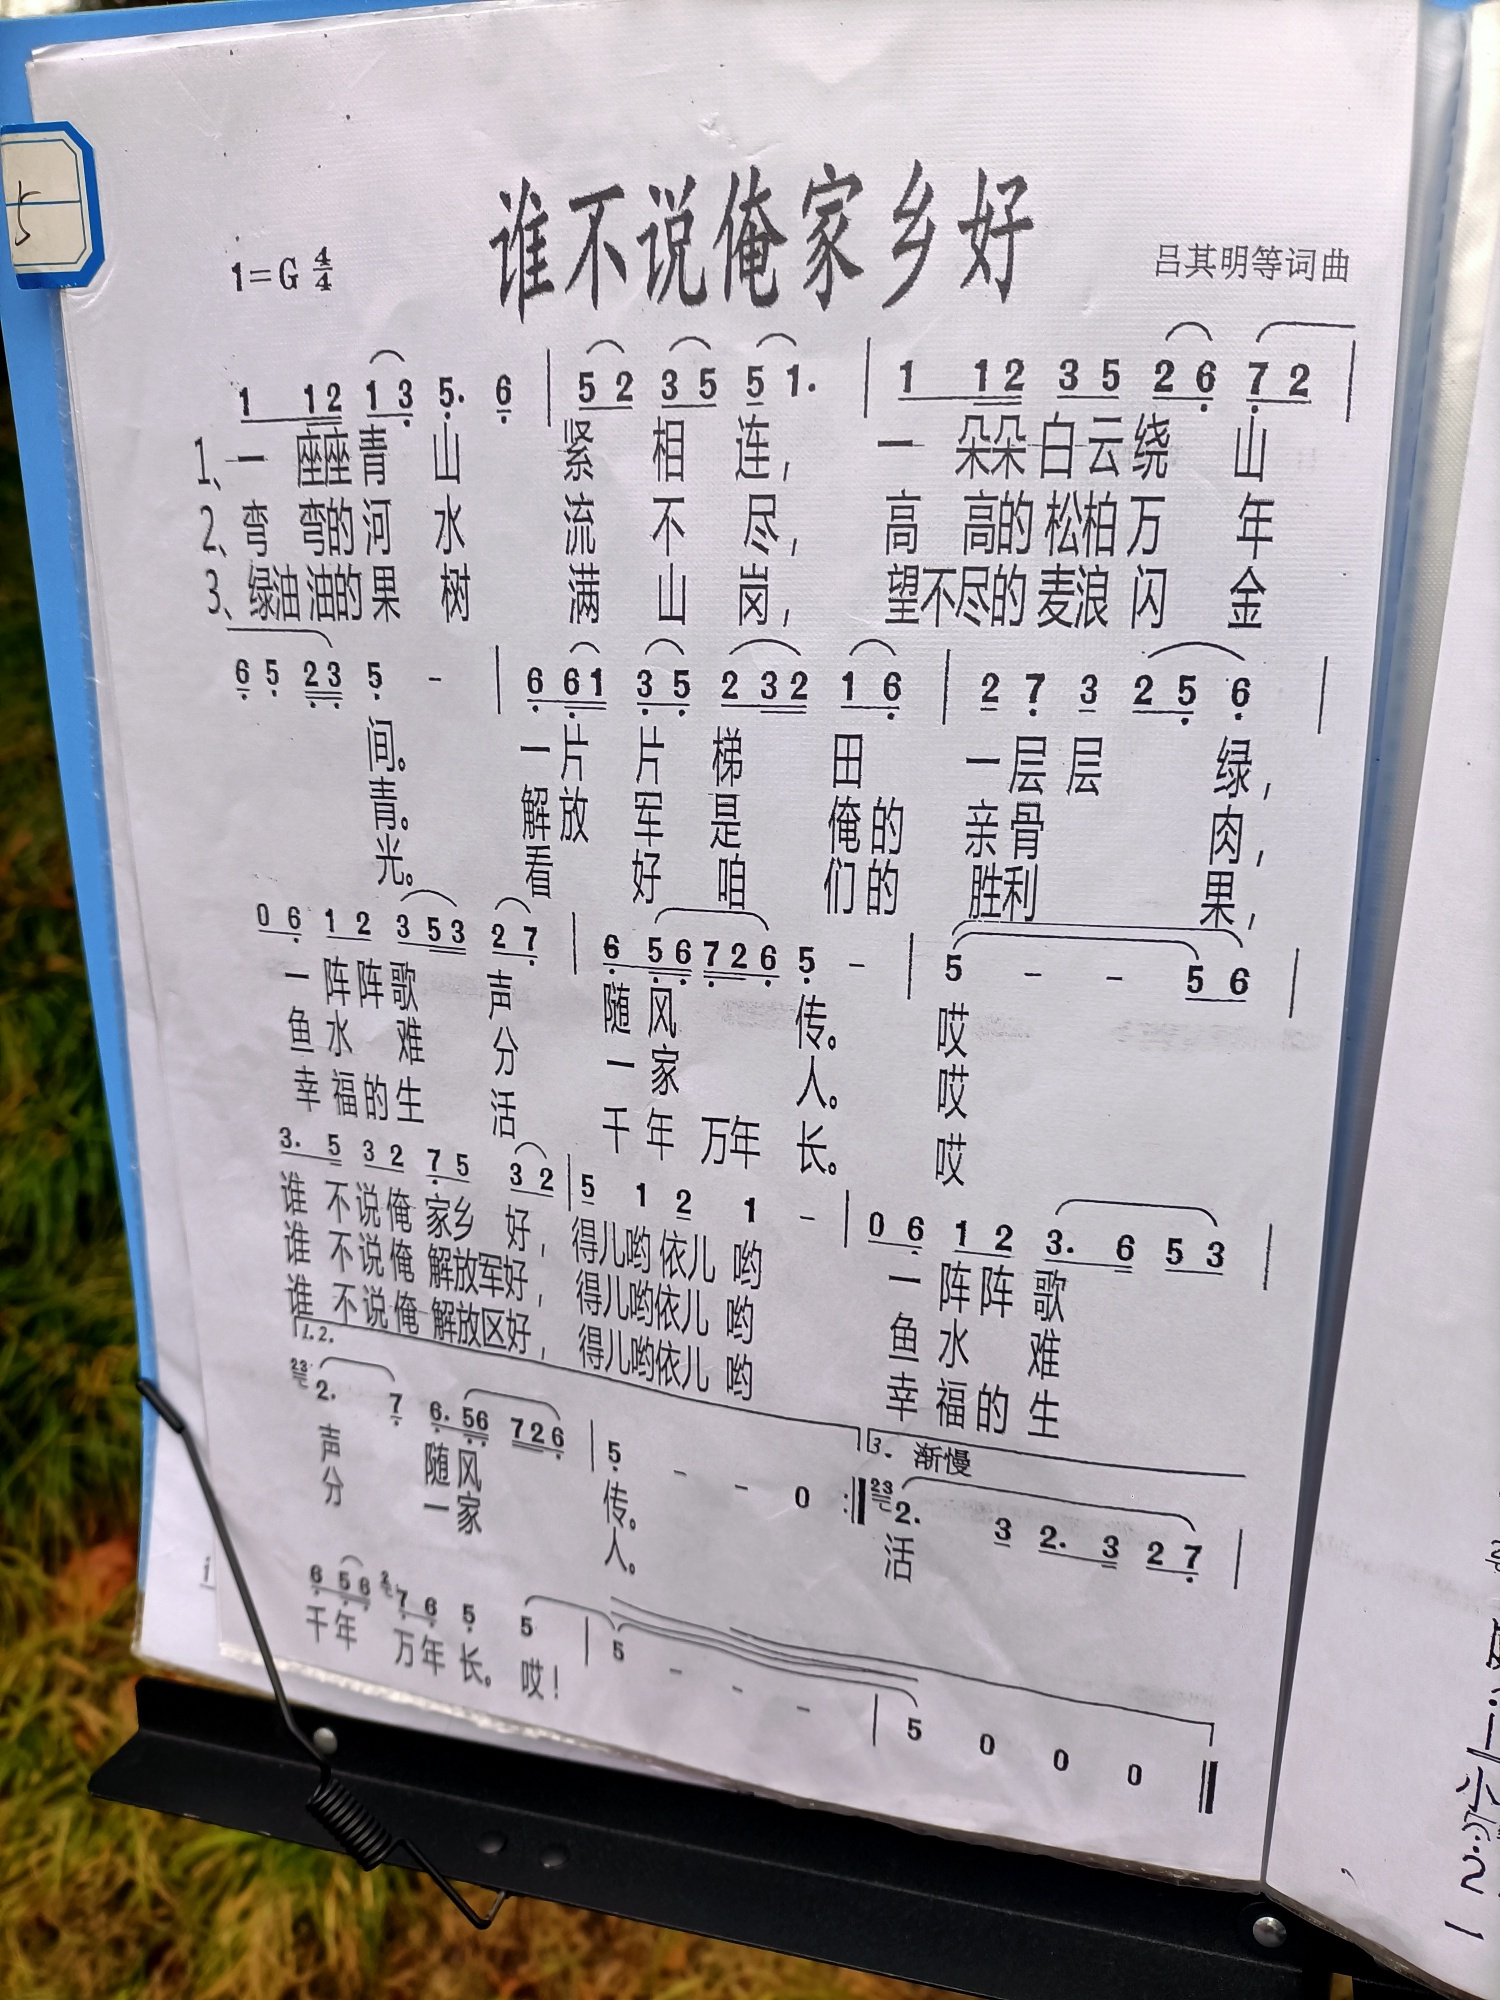 5
谁不说俺家乡好
1=G 4/4
吕其明等词曲
1 12 13 5. 6 | 52 35 51. | 1 12 35 26 72 |
1、一 座座青 山 紧 相 连, 一 朵朵白云绕 山
2、弯 弯的河 水 流 不 尽, 高 高的松柏万 年
3、绿油油的果 树 满 山 岗, 望不尽的麦浪闪 金
6 5 23 5 - | 6 61 35 2 32 1 6 | 2 7 3 2 5 6 |
间。 一片 片 梯 田 一层层 绿,
青。 解放 军 是 俺的 亲骨 肉,
光。 看 好 咱 们的 胜利 果,
0 6 1 2 3 53 2 7 | 6 56 726 5 - | 5 - - 5 6 |
一 阵阵歌 声 随风 传。 哎
鱼水 难 分 一家 人。 哎
幸福的生 活 千年 万年 长。 哎
3. 5 3 2 7 5 3 2 | 5 1 2 1 - | 0 6 1 2 3. 6 5 3 |
谁 不说俺 家乡 好, 得儿哟依儿 哟 一 阵阵歌
谁 不说俺 解放军好, 得儿哟依儿 哟 鱼水 难
谁 不说俺 解放区好, 得儿哟依儿 哟 幸福的生
1.2.
3. 渐慢
23 2. 7 6. 56 726 | 5 - - 0 :‖ 23 2. 3 2. 3 2 7 |
声 随风 传。 活
分 一家 人。
6 56 2 7 6 5 5 | 5 - - - | 5 0 0 0 ‖
千年 万年 长。 哎!